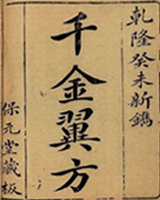 乾隆癸未新鐫
千金翼方
保元堂藏板